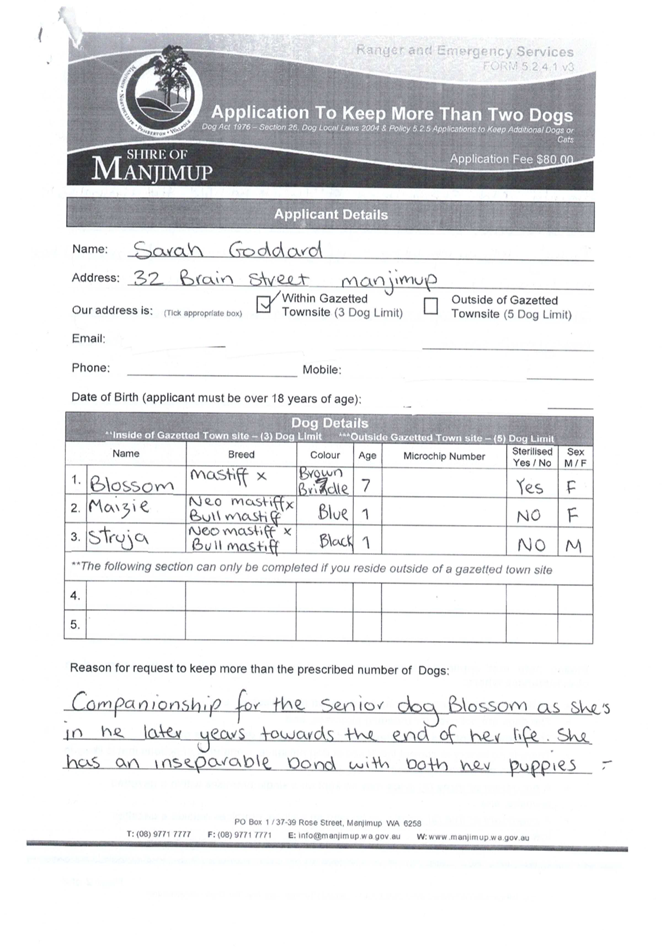 Ranger and Emergency Services
FORM 5.2.4.1 v3
Application To Keep More Than Two Dogs
Dog Act 1976 – Section 26, Dog Local Laws 2004 & Policy 5.2.5 Applications to Keep Additional Dogs or
Cats
Application Fee $80.00
SHIRE OF
MANJIMUP
Applicant Details
Name: Sarah Goddard
Address: 32 Brain Street manjimup
Our address is: (Tick appropriate box) Within Gazetted Townsite (3 Dog Limit) Outside of Gazetted Townsite (5 Dog Limit)
Email:
Phone: Mobile:
Date of Birth (applicant must be over 18 years of age):
Dog Details
**Inside of Gazetted Town site – (3) Dog Limit ***Outside Gazetted Town site – (5) Dog Limit
Name Breed Colour Age Microchip Number Sterilised Yes / No Sex M / F
1. Blossom mastiff x Brown Brindle 7 Yes F
2. Maizie Neo mastiff x Bull mastiff Blue 1 NO F
3. Struja Neo mastiff x Bull mastiff Black 1 NO M
**The following section can only be completed if you reside outside of a gazetted town site
4.
5.
Reason for request to keep more than the prescribed number of Dogs:
Companionship for the senior dog Blossom as she's
in he later years towards the end of her life. She
has an inseparable bond with both her puppies -
PO Box 1 / 37-39 Rose Street, Manjimup WA 6258
T: (08) 9771 7777 F: (08) 9771 7771 E: info@manjimup.wa.gov.au W: www.manjimup.wa.gov.au